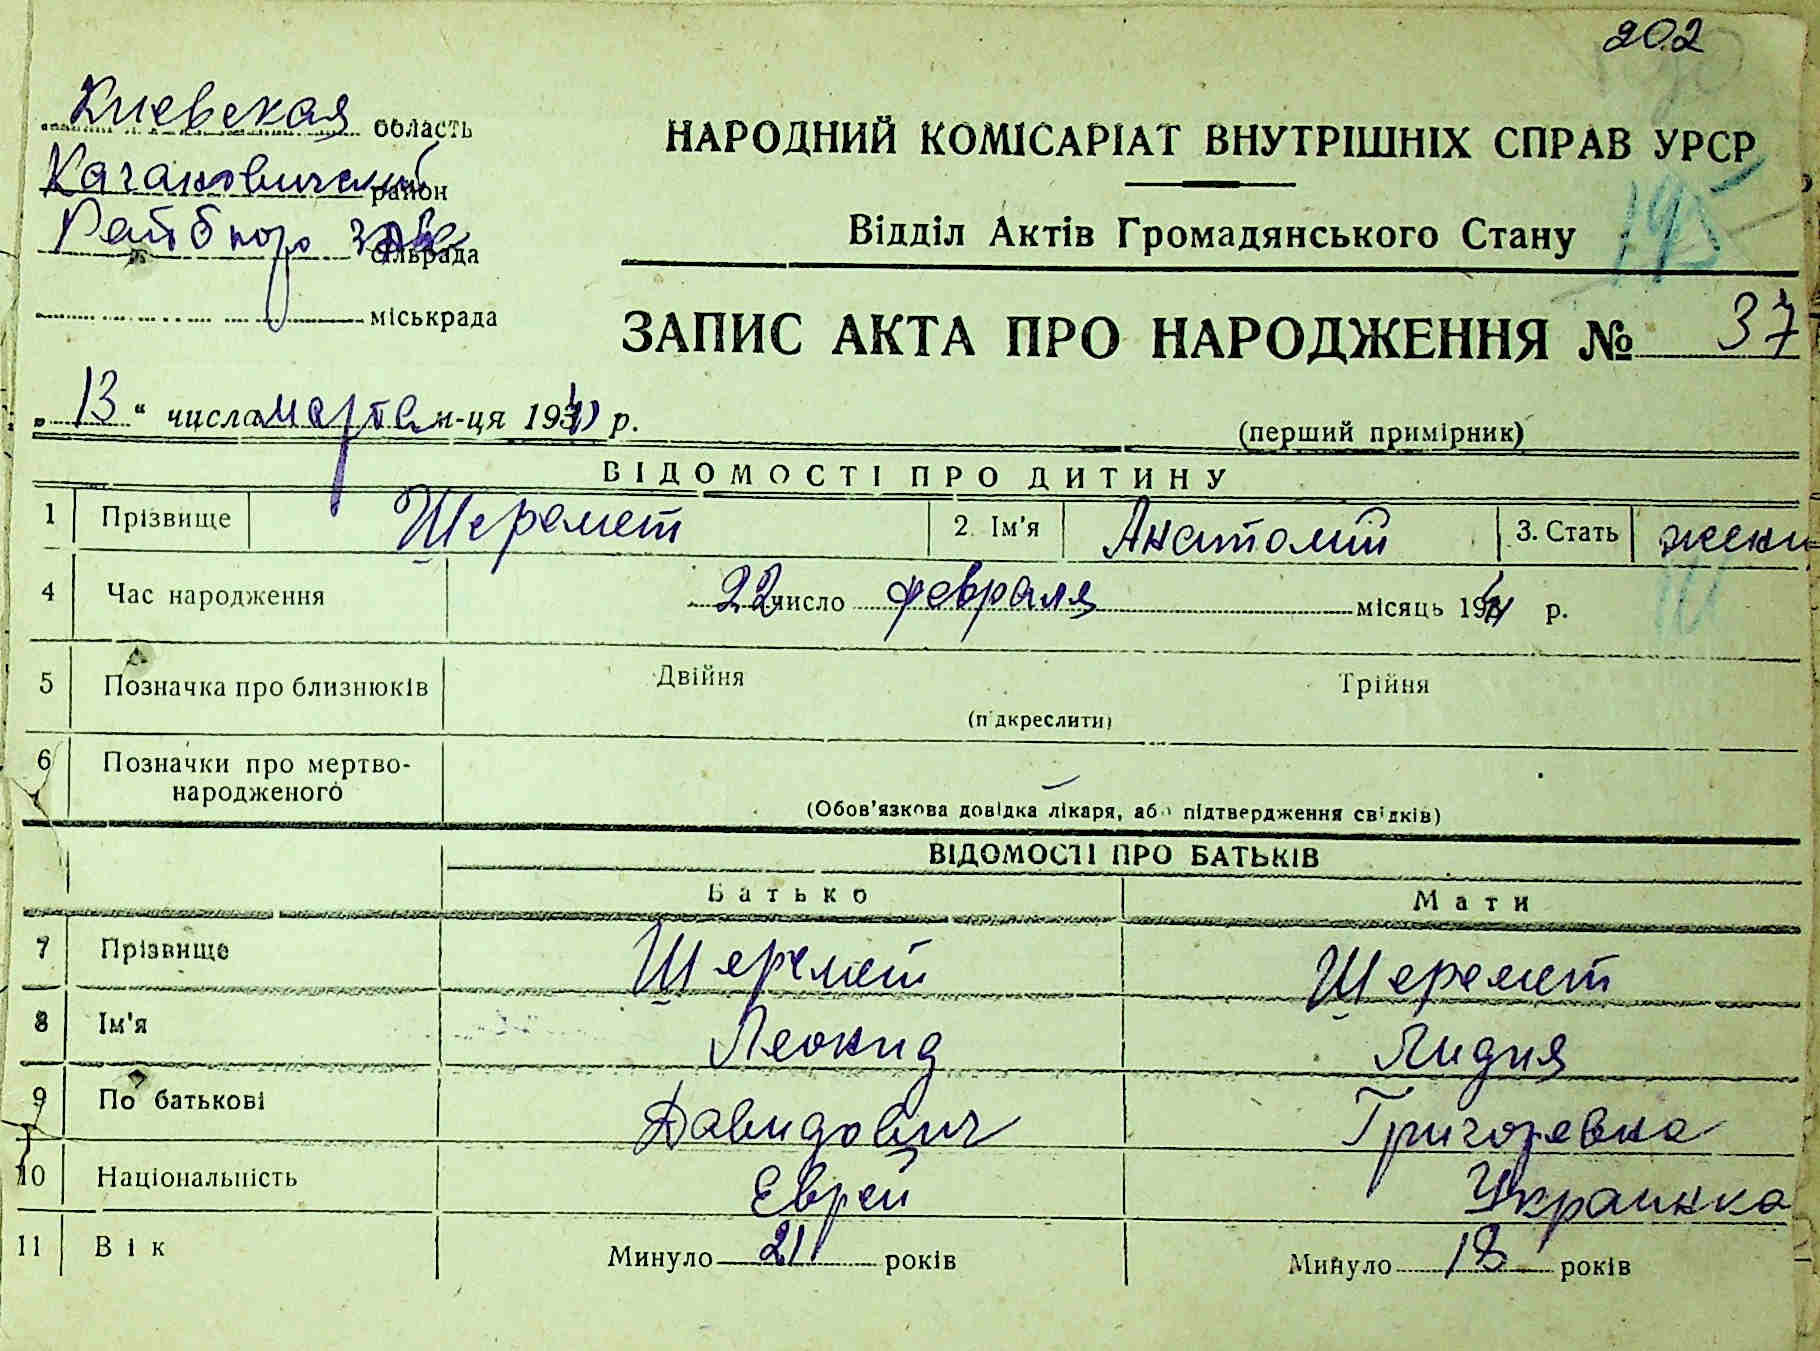 202
Киевская область
Кагановичский район
Райбюро загс сільрада
міськрада
НАРОДНИЙ КОМІСАРІАТ ВНУТРІШНІХ СПРАВ УРСР
195
Відділ Актів Громадянського Стану
ЗАПИС АКТА ПРО НАРОДЖЕННЯ № 37
„13“ числа марта м-ця 1941 р.
(перший примірник)
ВІДОМОСТІ ПРО ДИТИНУ
1 Прізвище Шеремет 2. Ім'я Анатолий 3. Стать
4 Час народження 22 число февраля місяць 1941 р.
5 Позначка про близнюків Двійня Трійня
(підкреслити)
6 Позначки про мертво-
народженого
(Обов'язкова довідка лікаря, або підтвердження свідків)
ВІДОМОСТІ ПРО БАТЬКІВ
Батько Мати
7 Прізвище Шеремет Шеремет
8 Ім'я Леонид Лидия
9 По батькові Давидович Григоревна
10 Національність Еврей Украинка
11 Вік Минуло 21 років Минуло 18 років